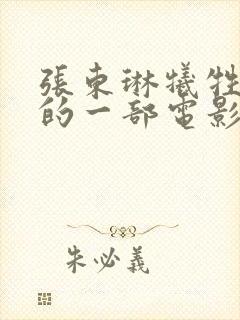 張東琳犧牲
的一部電影
朱必義